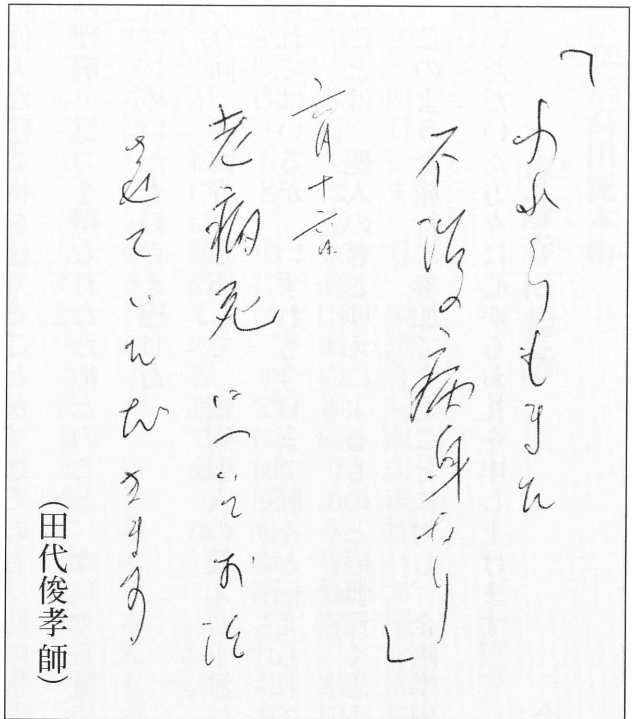 「　もまた
不治の病身なり」
六月十六日
老病死 についてお話
させていただきます
（田代俊孝師）